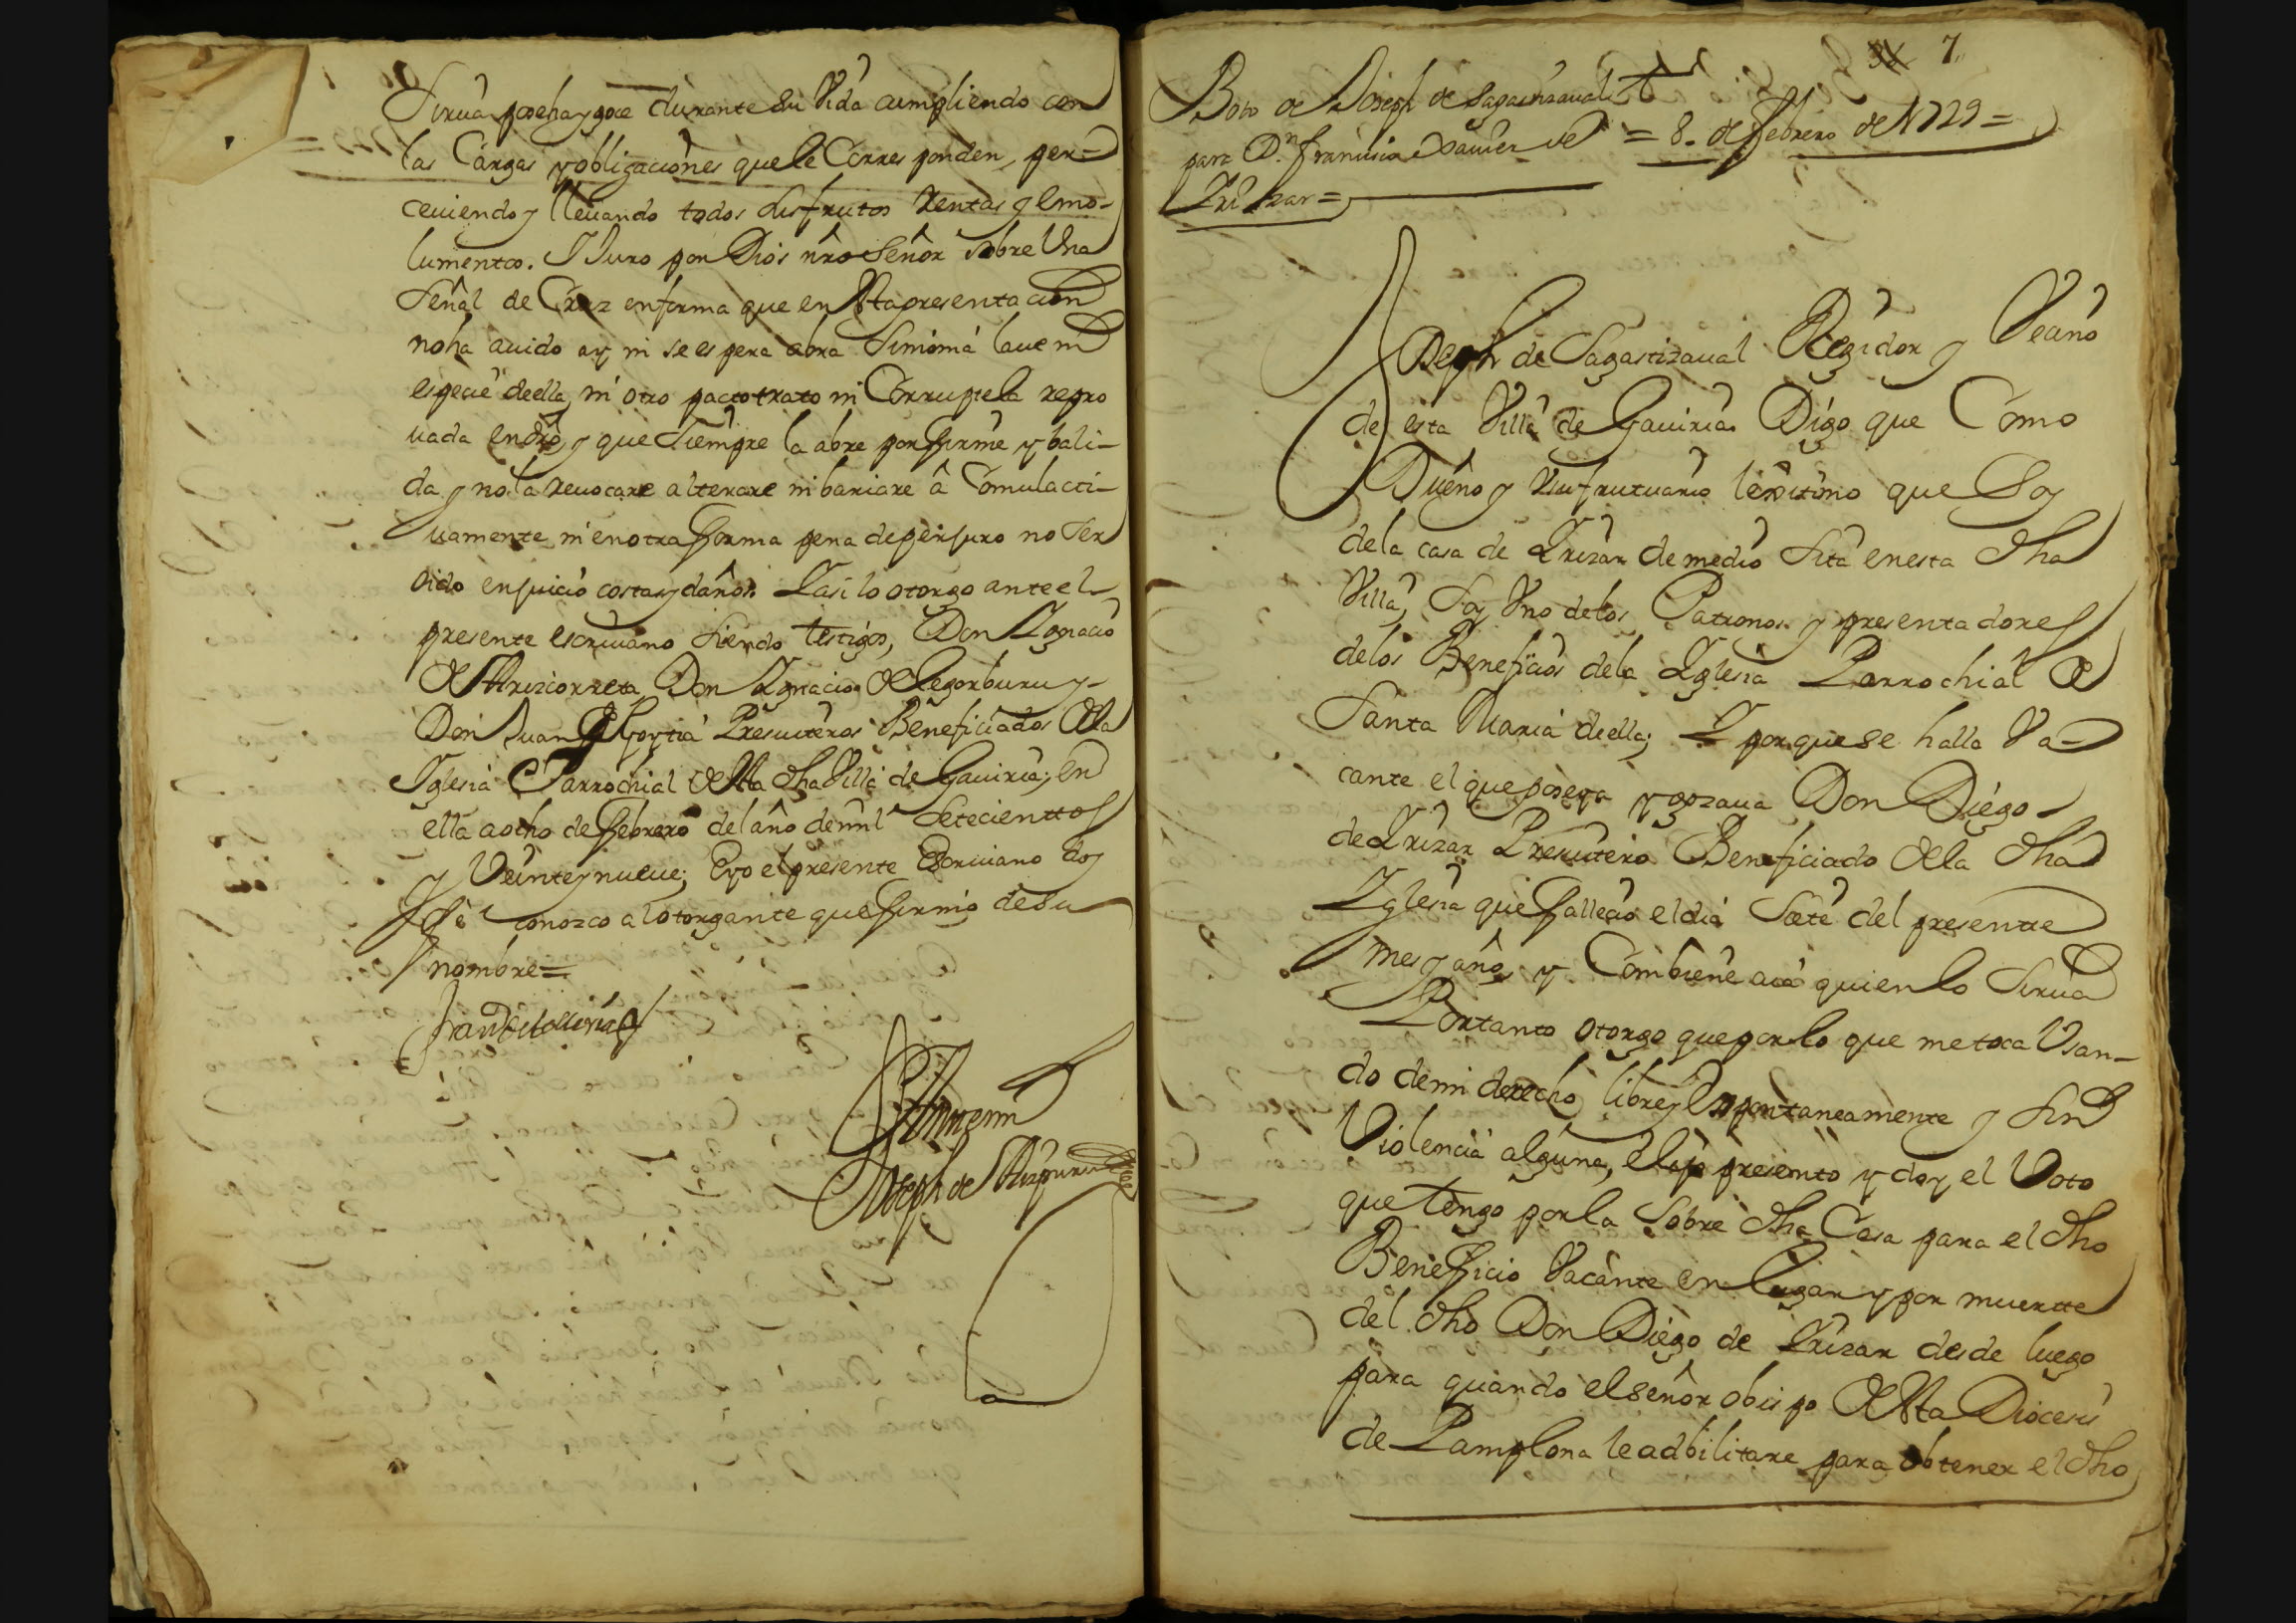 Sirua poseha y goce durante su Vida cumpliendo con
las Cargas y obligaciones que le Corresponden, per-
ceuiendo y lleuando todos sus frutos Rentas y emo-
lumentos. Y Juro por Dios nrō Señor sobre Vna
Señal de Cruz en forma que en esta presentacion
no ha auido ay ni se espera abra Simonia laue ni
especie de ella, ni otro pacto trato ni Corruptela repro
uada en drō, y que siempre la abre por firme y bali-
da, y no la reuocare alterare ni bariare â Comulacti-
uamente ni en otra forma pena de perjuro no ser
oido en juicio costas y daños. Y asi lo otorgo ante el
presente escriuano siendo testigos, Don Ygnacio
de Arizcorreta, Don Ygnacio de Legorburu y
Don Juan de Presuiteros Beneficiados de la
Yglesia Parrochial de esta dha Villa de Gauiria; en
ella a ocho de febrero del año de mil setecienttos
y Veinte y nueue; E yo el presente Escriuano doy
fê conozco al otorgante que firmó de su
nombre=
Antemi
Joseph de Aizpuru
7
Boto de Joseph de Sagastizaual
para D.n Francisco Xauier de = 8. de febrero de 1729 =
Yrizar =
Joseph de Sagastizaual Regidor y Vecino
de esta Villa de Gauiria. Digo que Como
Dueño y Vsufrutuario lexitimo que Soy
de la casa de Yrizar de medio Sita en esta dha
Villa, Soy Vno de los Patronos y presentadores
de los Beneficios de la Yglesia Parrochial de
Santa Maria de ella; Y porque se halla Va-
cante el que poseya y gozaua Don Diego
de Yrizar Presuitero Beneficiado de la dha
Yglesia que fallecio el dia Siete del presentte
mes y año, y Combiene aia quien lo Sirua
Portanto otorgo que por lo que me toca Vsan-
do de mi derecho libre y Espontaneamente y Sin
Violencia alguna, elijo presento y doy el Voto
que tengo por la Sobre dha Casa para el dho
Beneficio Vacante en lugar y por muertte
del dho Don Diego de Yrizar desde luego
para quando el señor obispo de esta Diocesis
de Pamplona le adbilitare para obtener el dho